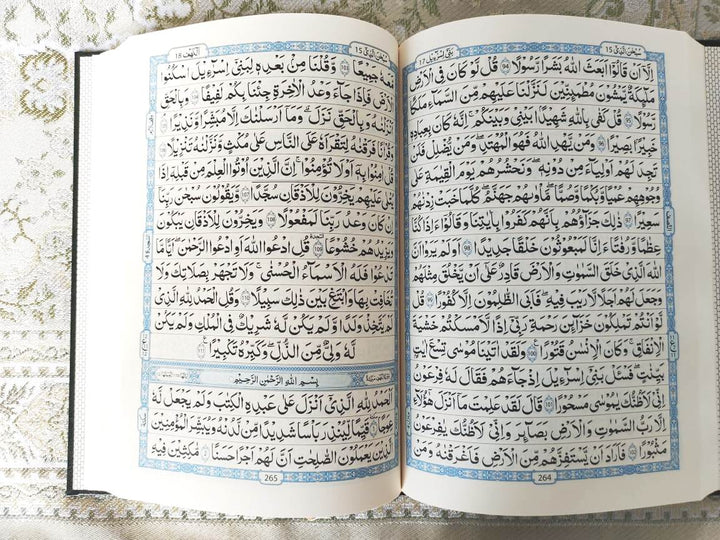 سُبْحٰنَ الَّذِیْۤ 15 بَنِیْۤ اِسْرَآءِیْل 17
اِلَّاۤ اَنْ قَالُوْۤا اَبَعَثَ اللّٰهُ بَشَرًا رَّسُوْلًا ۝94 قُلْ لَّوْ كَانَ فِی الْاَرْضِ
مَلٰٓئِكَةٌ یَّمْشُوْنَ مُطْمَئِنِّیْنَ لَنَزَّلْنَا عَلَیْهِمْ مِّنَ السَّمَآءِ مَلَكًا
رَّسُوْلًا ۝95 قُلْ كَفٰی بِاللّٰهِ شَهِیْدًۢا بَیْنِیْ وَبَیْنَكُمْ ؕ اِنَّهٗ كَانَ بِعِبَادِهٖ
خَبِیْرًۢا بَصِیْرًا ۝96 وَمَنْ یَّهْدِ اللّٰهُ فَهُوَ الْمُهْتَدِ ۚ وَمَنْ یُّضْلِلْ فَلَنْ
تَجِدَ لَهُمْ اَوْلِیَآءَ مِنْ دُوْنِهٖ ؕ وَنَحْشُرُهُمْ یَوْمَ الْقِیٰمَةِ عَلٰی
وُجُوْهِهِمْ عُمْیًا وَّبُكْمًا وَّصُمًّا ؕ مَاْوٰىهُمْ جَهَنَّمُ ؕ كُلَّمَا خَبَتْ زِدْنٰهُمْ
سَعِیْرًا ۝97 ذٰلِكَ جَزَآؤُهُمْ بِاَنَّهُمْ كَفَرُوْا بِاٰیٰتِنَا وَقَالُوْۤا ءَاِذَا كُنَّا
عِظَامًا وَّرُفَاتًا ءَاِنَّا لَمَبْعُوْثُوْنَ خَلْقًا جَدِیْدًا ۝98 اَوَلَمْ یَرَوْا اَنَّ
اللّٰهَ الَّذِیْ خَلَقَ السَّمٰوٰتِ وَالْاَرْضَ قَادِرٌ عَلٰۤی اَنْ یَّخْلُقَ مِثْلَهُمْ
وَجَعَلَ لَهُمْ اَجَلًا لَّا رَیْبَ فِیْهِ ؕ فَاَبَی الظّٰلِمُوْنَ اِلَّا كُفُوْرًا ۝99 قُلْ
لَّوْ اَنْتُمْ تَمْلِكُوْنَ خَزَآئِنَ رَحْمَةِ رَبِّیْۤ اِذًا لَّاَمْسَكْتُمْ خَشْیَةَ
الْاِنْفَاقِ ؕ وَكَانَ الْاِنْسَانُ قَتُوْرًا ۝100 وَلَقَدْ اٰتَیْنَا مُوْسٰی تِسْعَ اٰیٰتٍۢ
بَیِّنٰتٍ فَسْئَلْ بَنِیْۤ اِسْرَآءِیْلَ اِذْ جَآءَهُمْ فَقَالَ لَهٗ فِرْعَوْنُ
اِنِّیْ لَاَظُنُّكَ یٰمُوْسٰی مَسْحُوْرًا ۝101 قَالَ لَقَدْ عَلِمْتَ مَاۤ اَنْزَلَ هٰۤؤُلَآءِ
اِلَّا رَبُّ السَّمٰوٰتِ وَالْاَرْضِ بَصَآئِرَ ۚ وَاِنِّیْ لَاَظُنُّكَ یٰفِرْعَوْنُ
مَثْبُوْرًا ۝102 فَاَرَادَ اَنْ یَّسْتَفِزَّهُمْ مِّنَ الْاَرْضِ فَاَغْرَقْنٰهُ وَمَنْ
264
سُبْحٰنَ الَّذِیْۤ 15 اَلْكَهْف 18
مَّعَهٗ جَمِیْعًا ۝103 وَّقُلْنَا مِنْۢ بَعْدِهٖ لِبَنِیْۤ اِسْرَآءِیْلَ اسْكُنُوا
الْاَرْضَ فَاِذَا جَآءَ وَعْدُ الْاٰخِرَةِ جِئْنَا بِكُمْ لَفِیْفًا ۝104 وَبِالْحَقِّ
اَنْزَلْنٰهُ وَبِالْحَقِّ نَزَلَ ؕ وَمَاۤ اَرْسَلْنٰكَ اِلَّا مُبَشِّرًا وَّنَذِیْرًا ۝105
وَقُرْاٰنًا فَرَقْنٰهُ لِتَقْرَاَهٗ عَلَی النَّاسِ عَلٰی مُكْثٍ وَّنَزَّلْنٰهُ تَنْزِیْلًا ۝106
قُلْ اٰمِنُوْا بِهٖۤ اَوْ لَا تُؤْمِنُوْا ؕ اِنَّ الَّذِیْنَ اُوْتُوا الْعِلْمَ مِنْ قَبْلِهٖۤ اِذَا
یُتْلٰی عَلَیْهِمْ یَخِرُّوْنَ لِلْاَذْقَانِ سُجَّدًا ۝107 وَّیَقُوْلُوْنَ سُبْحٰنَ رَبِّنَاۤ
اِنْ كَانَ وَعْدُ رَبِّنَا لَمَفْعُوْلًا ۝108 وَیَخِرُّوْنَ لِلْاَذْقَانِ یَبْكُوْنَ
وَیَزِیْدُهُمْ خُشُوْعًا ۝109 قُلِ ادْعُوا اللّٰهَ اَوِ ادْعُوا الرَّحْمٰنَ ؕ اَیًّا مَّا
تَدْعُوْا فَلَهُ الْاَسْمَآءُ الْحُسْنٰی ۚ وَلَا تَجْهَرْ بِصَلَاتِكَ وَلَا
تُخَافِتْ بِهَا وَابْتَغِ بَیْنَ ذٰلِكَ سَبِیْلًا ۝110 وَقُلِ الْحَمْدُ لِلّٰهِ الَّذِیْ
لَمْ یَتَّخِذْ وَلَدًا وَّلَمْ یَكُنْ لَّهٗ شَرِیْكٌ فِی الْمُلْكِ وَلَمْ یَكُنْ
لَّهٗ وَلِیٌّ مِّنَ الذُّلِّ وَكَبِّرْهُ تَكْبِیْرًا ۝111
بِسْمِ اللّٰهِ الرَّحْمٰنِ الرَّحِیْمِ
اَلْحَمْدُ لِلّٰهِ الَّذِیْۤ اَنْزَلَ عَلٰی عَبْدِهِ الْكِتٰبَ وَلَمْ یَجْعَلْ لَّهٗ
عِوَجًا ۝1 قَیِّمًا لِّیُنْذِرَ بَاْسًا شَدِیْدًا مِّنْ لَّدُنْهُ وَیُبَشِّرَ الْمُؤْمِنِیْنَ
الَّذِیْنَ یَعْمَلُوْنَ الصّٰلِحٰتِ اَنَّ لَهُمْ اَجْرًا حَسَنًا ۝2 مَّاكِثِیْنَ فِیْهِ
265